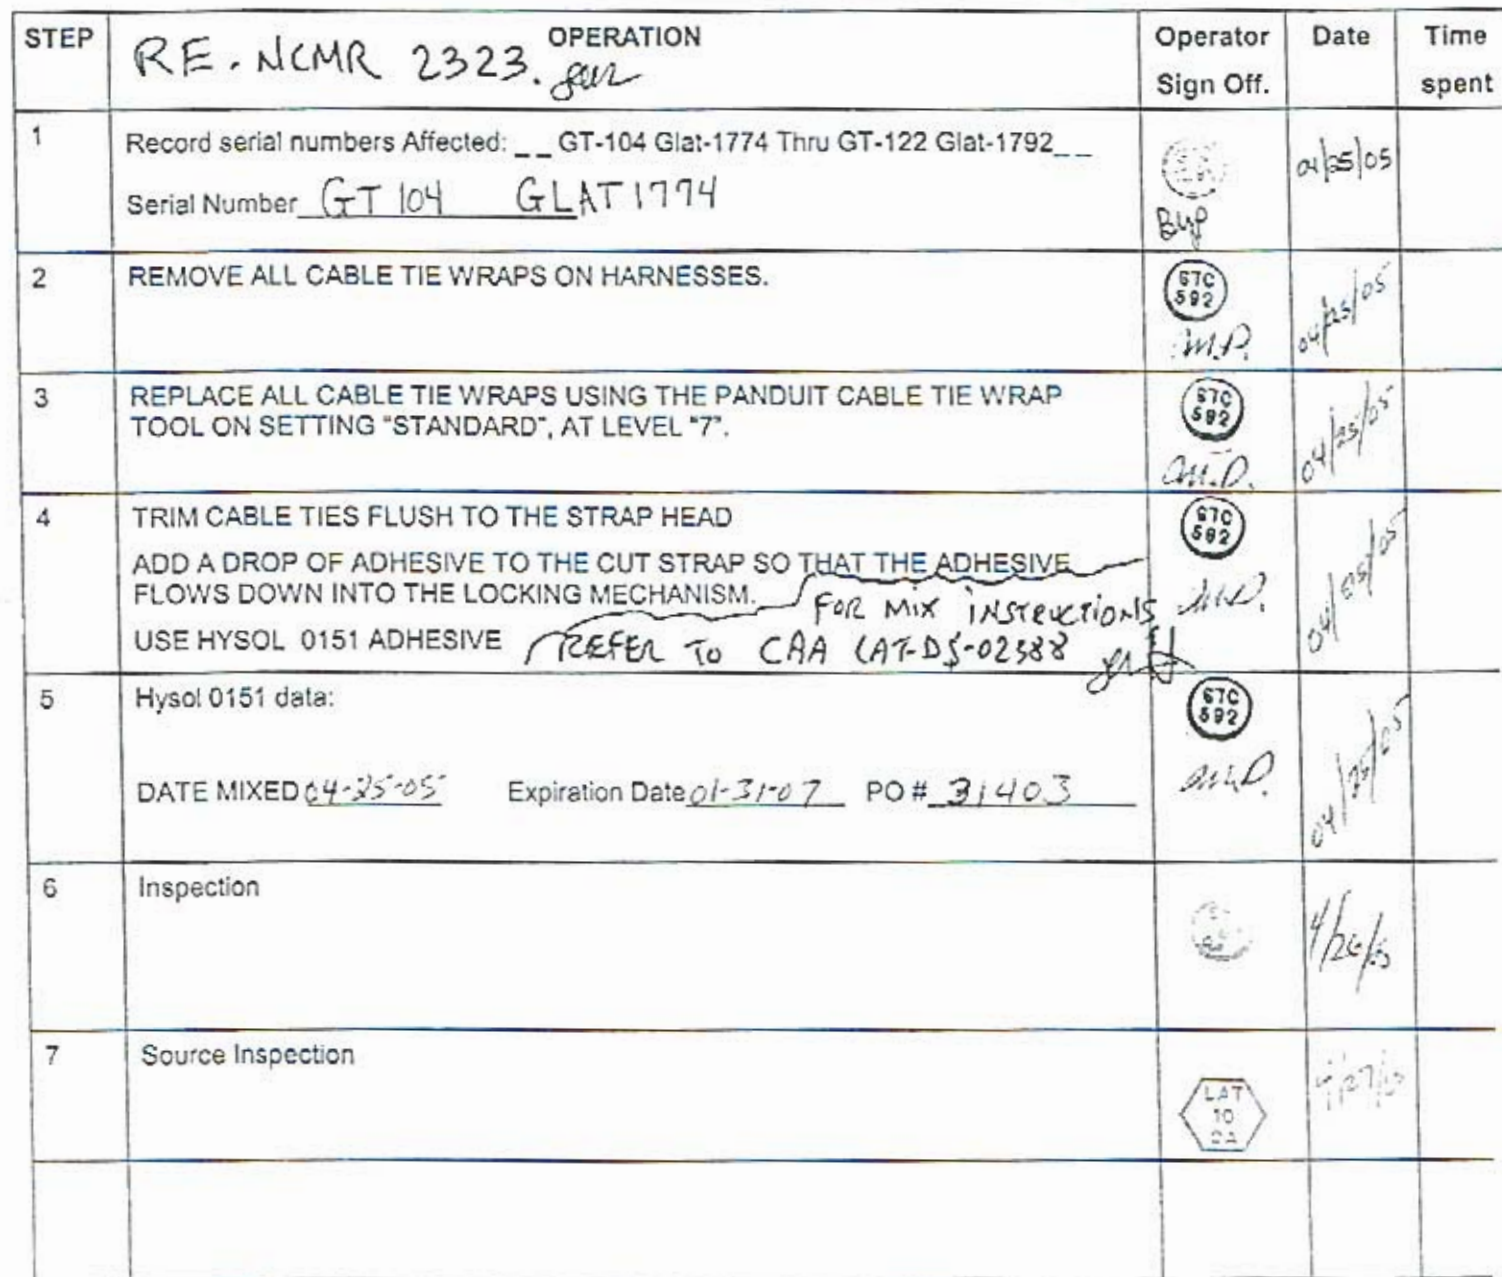 STEP
RE. NCMR 2323.
OPERATION
Operator
Sign Off.
Date
Time
spent
1
Record serial numbers Affected: _ _ GT-104 Glat-1774 Thru GT-122 Glat-1792_ _
Serial Number GT 104 GLAT1774
04/25/05
2
REMOVE ALL CABLE TIE WRAPS ON HARNESSES.
GTC
592
M.D.
04/25/05
3
REPLACE ALL CABLE TIE WRAPS USING THE PANDUIT CABLE TIE WRAP
TOOL ON SETTING "STANDARD", AT LEVEL "7".
GTC
592
M.D.
04/25/05
4
TRIM CABLE TIES FLUSH TO THE STRAP HEAD
ADD A DROP OF ADHESIVE TO THE CUT STRAP SO THAT THE ADHESIVE
FLOWS DOWN INTO THE LOCKING MECHANISM.
FOR MIX INSTRUCTIONS
USE HYSOL 0151 ADHESIVE
REFER TO CAA LAT-DS-02388
GTC
592
M.D.
04/25/05
5
Hysol 0151 data:
DATE MIXED 04-25-05 Expiration Date 01-31-07 PO # 31403
GTC
592
M.D.
04/25/05
6
Inspection
4/26/05
7
Source Inspection
LAT
10
4/27/05